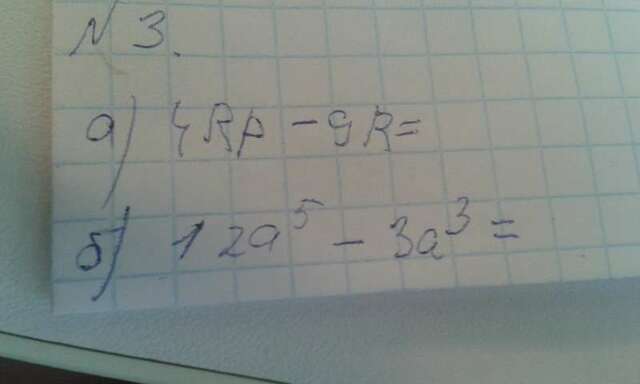 N 3.
а) 4Rp - 9R=
б) 12a⁵ - 3a³ =